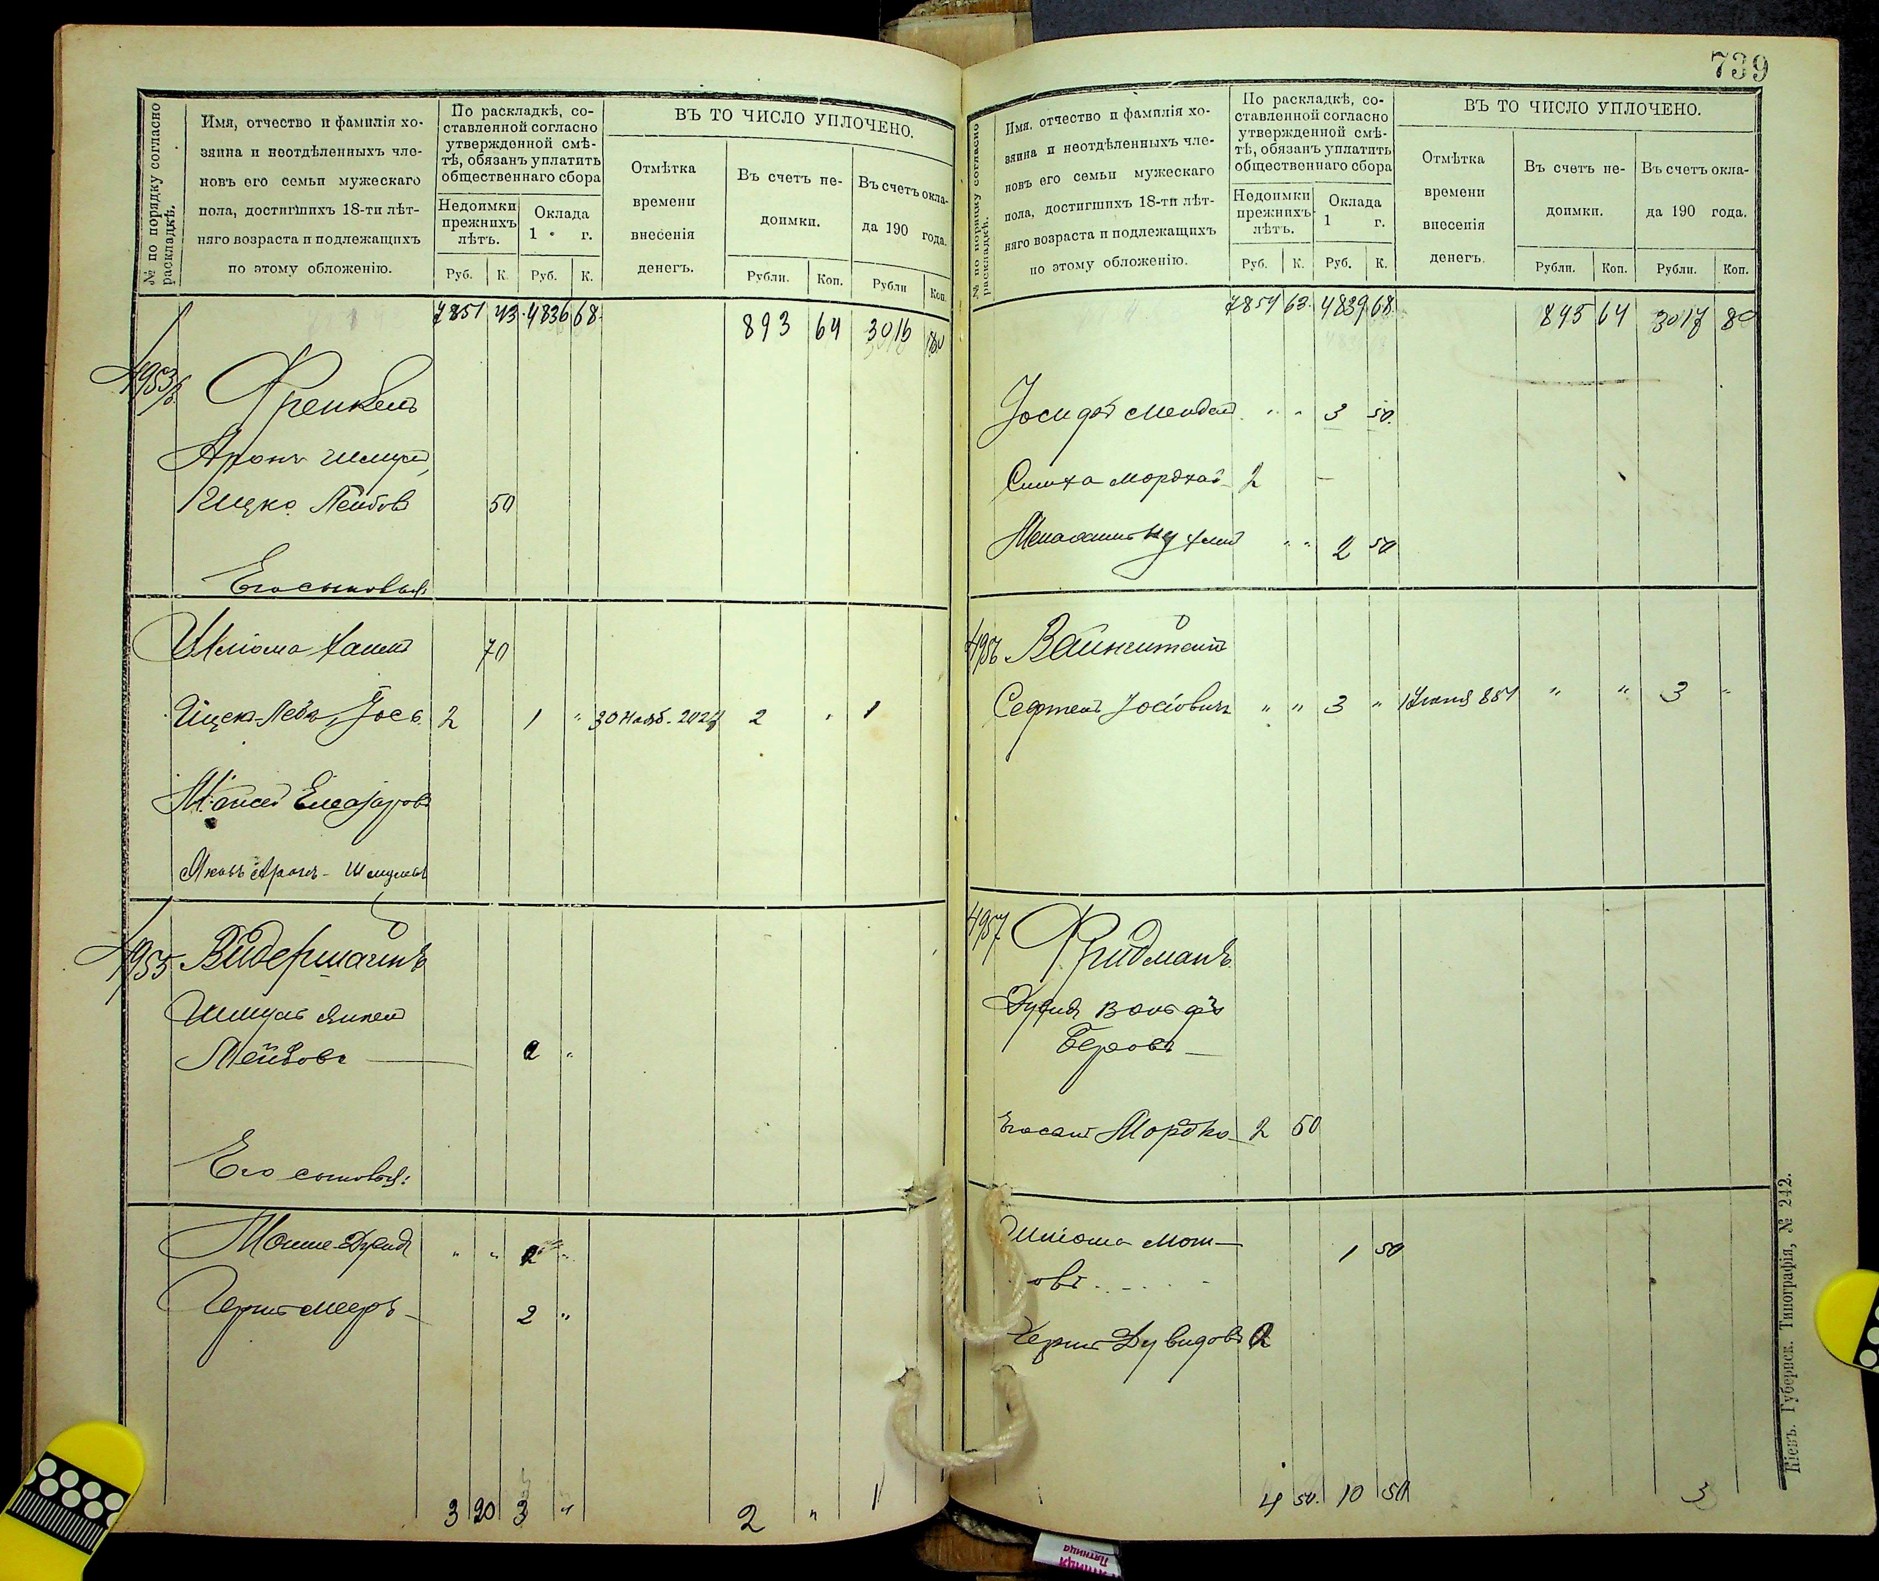 739
№ по порядку согласно раскладкѣ.
Имя, отчество и фамилія хо-
зяина и неотдѣленныхъ чле-
новъ его семьи мужескаго
пола, достигшихъ 18-ти лѣт-
няго возраста и подлежащихъ
по этому обложенію.
По раскладкѣ, со-
ставленной согласно
утвержденной смѣ-
тѣ, обязанъ уплатить
общественнаго сбора
Недоимки
прежнихъ
лѣтъ.
Оклада
1 г.
Руб. К. Руб. К.
ВЪ ТО ЧИСЛО УПЛОЧЕНО.
Отмѣтка
времени
внесенія
денегъ.
Въ счетъ не-
доимки.
Въ счетъ окла-
да 190 года.
Рубли. Коп. Рубли Коп.
7851 43 4836 68 893 64 3016 80
Френкель
Аронъ Шмуль
Ицко Лейбовъ 50
Его сыновья:
Шліома Хаимъ 70
Ицекъ-Лейба, Іосъ 2 1 " 30 Нояб. 2027 2 " 1
Мойсей Елеазаровъ
Яковъ Аронъ-Шмулевъ
4955 Видерманъ
Шмуль
Лейбовъ 2 "
Его сыновья:
Мошше-Дувид " " 2 "
Гершъ Мееръ 2 "
3 20 3 " 2 " 1
№ по порядку согласно раскладкѣ.
Имя, отчество и фамилія хо-
зяина и неотдѣленныхъ чле-
новъ его семьи мужескаго
пола, достигшихъ 18-ти лѣт-
няго возраста и подлежащихъ
по этому обложенію.
По раскладкѣ, со-
ставленной согласно
утвержденной смѣ-
тѣ, обязанъ уплатить
общественнаго сбора
Недоимки
прежнихъ
лѣтъ.
Оклада
1 г.
Руб. К. Руб. К.
ВЪ ТО ЧИСЛО УПЛОЧЕНО.
Отмѣтка
времени
внесенія
денегъ.
Въ счетъ не-
доимки.
Въ счетъ окла-
да 190 года.
Рубли. Коп. Рубли. Коп.
7854 63 4839 68 895 64 3017 80
Іосифъ Мендель " " 3 50
Симха Мордхай 2 -
Менашше Нухим " " 2 50
4956 Вайнштейнъ
Іосіовичъ " " 3 " 851 " " 3 "
4957 Фридманъ
Дувидъ Вольфъ
Беровъ
Его сынъ Мордко 2 50
Шліома Мош-
овъ 1 50
Гершъ Дувидовъ 2
4 50 10 50 3
Кіевъ. Губернск. Типографія, № 242.
Пятница